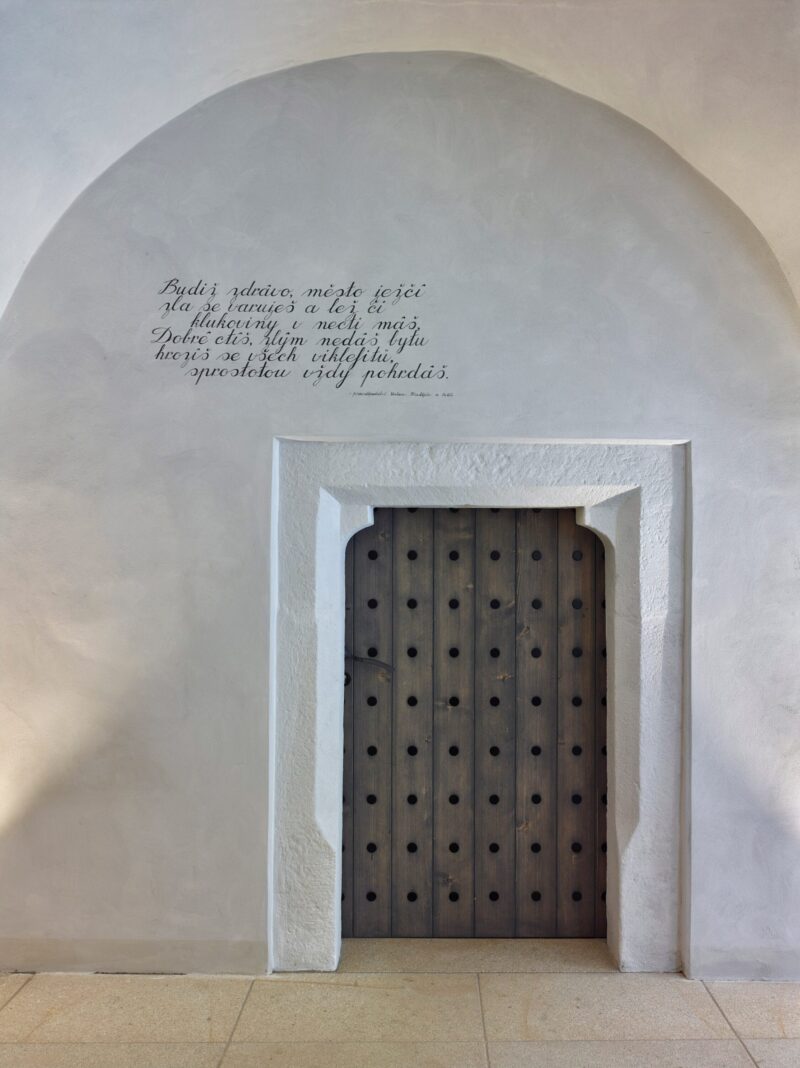 Budiž zdrávo, město jež čí
zla se varuješ a lež či
klukoviny v necti máš.
Dobré ctíš, zlým nedáš bytu
hrozíš se všech viklefitů,
sprostotou vždy pohrdáš.